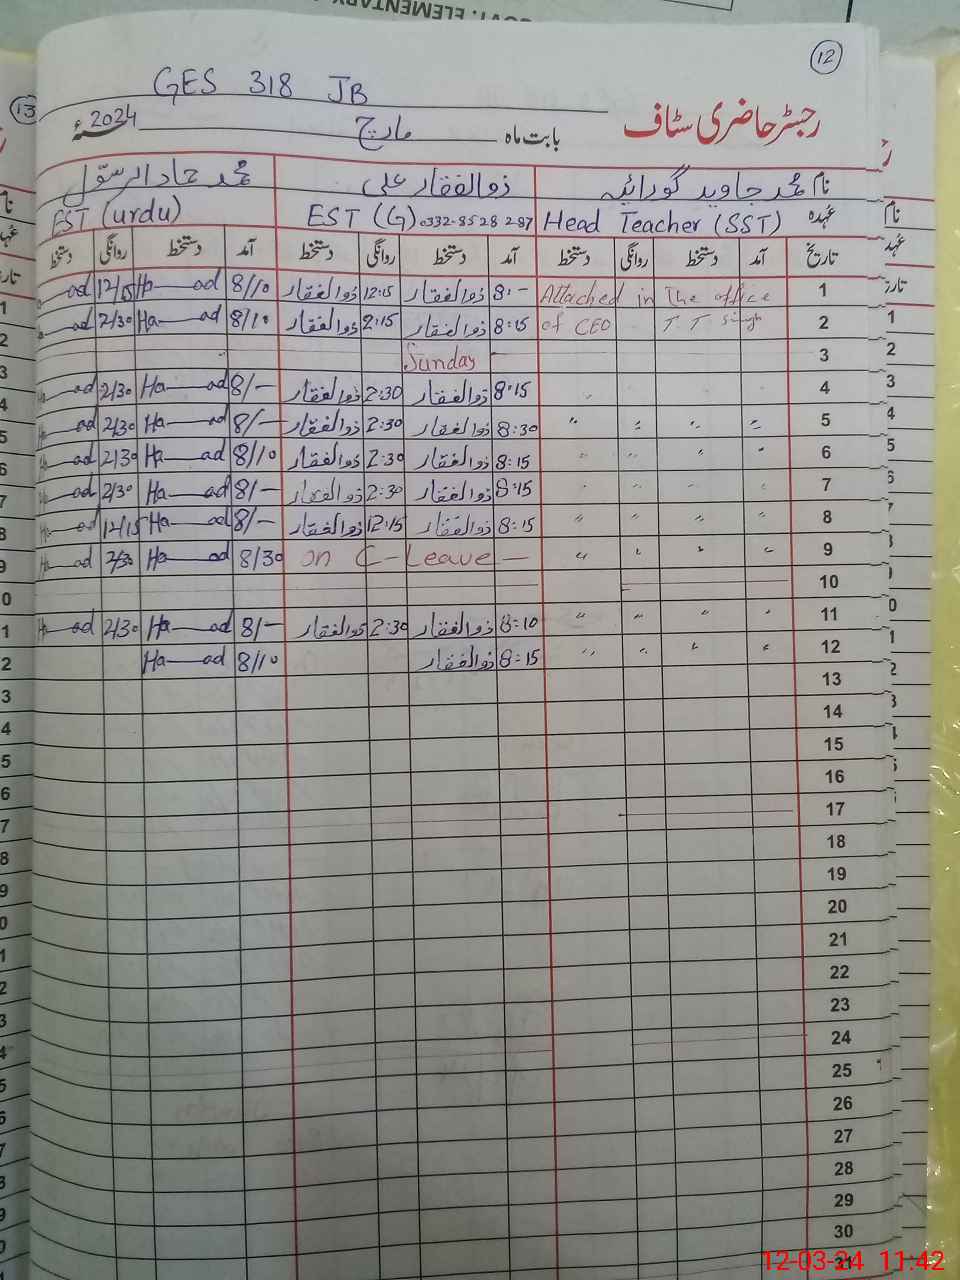 GOVT. ELEMENTARY
12
13
GES 318 JB
رجسٹر حاضری سٹاف
بابت ماہ مارچ 2024ء
نام محمد جاوید گورائیہ ذوالفقار علی محمد حماد الرسول
عہدہ Head Teacher (SST) EST (G) 0332-8528287 EST (urdu)
تاریخ آمد دستخط روانگی دستخط آمد دستخط روانگی دستخط آمد دستخط روانگی دستخط
1 Attached in The office 8:- ذوالفقار 12:15 ذوالفقار 8/10 Ha—ad 12/15 ad
2 of CEO T T Singh 8:15 ذوالفقار 2:15 ذوالفقار 8/10 Ha—ad 2/30 ad
3 Sunday
4 8:15 ذوالفقار 2:30 ذوالفقار 8/- Ha—ad 2/30 ad
5 " " " " 8:30 ذوالفقار 2:30 ذوالفقار 8/- Ha—ad 2/30 Ha—ad
6 " " " " 8:15 ذوالفقار 2:30 ذوالفقار 8/10 Ha—ad 2/30 Ha—ad
7 " " " " 8:15 ذوالفقار 2:30 ذوالفقار 8/- Ha—ad 2/30 Ha—ad
8 " " " " 8:15 ذوالفقار 12:15 ذوالفقار 8/- Ha—ad 12/15 Ha—ad
9 " " " " on C-Leave - 8/30 Ha—ad 2/30 Ha—ad
10
11 " " " " 8:10 ذوالفقار 2:30 ذوالفقار 8/- Ha—ad 2/30 Ha—ad
12 " " " " 8:15 ذوالفقار 8/10 Ha—ad
13
14
15
16
17
18
19
20
21
22
23
24
25
26
27
28
29
30
31
12-03-24 11:42